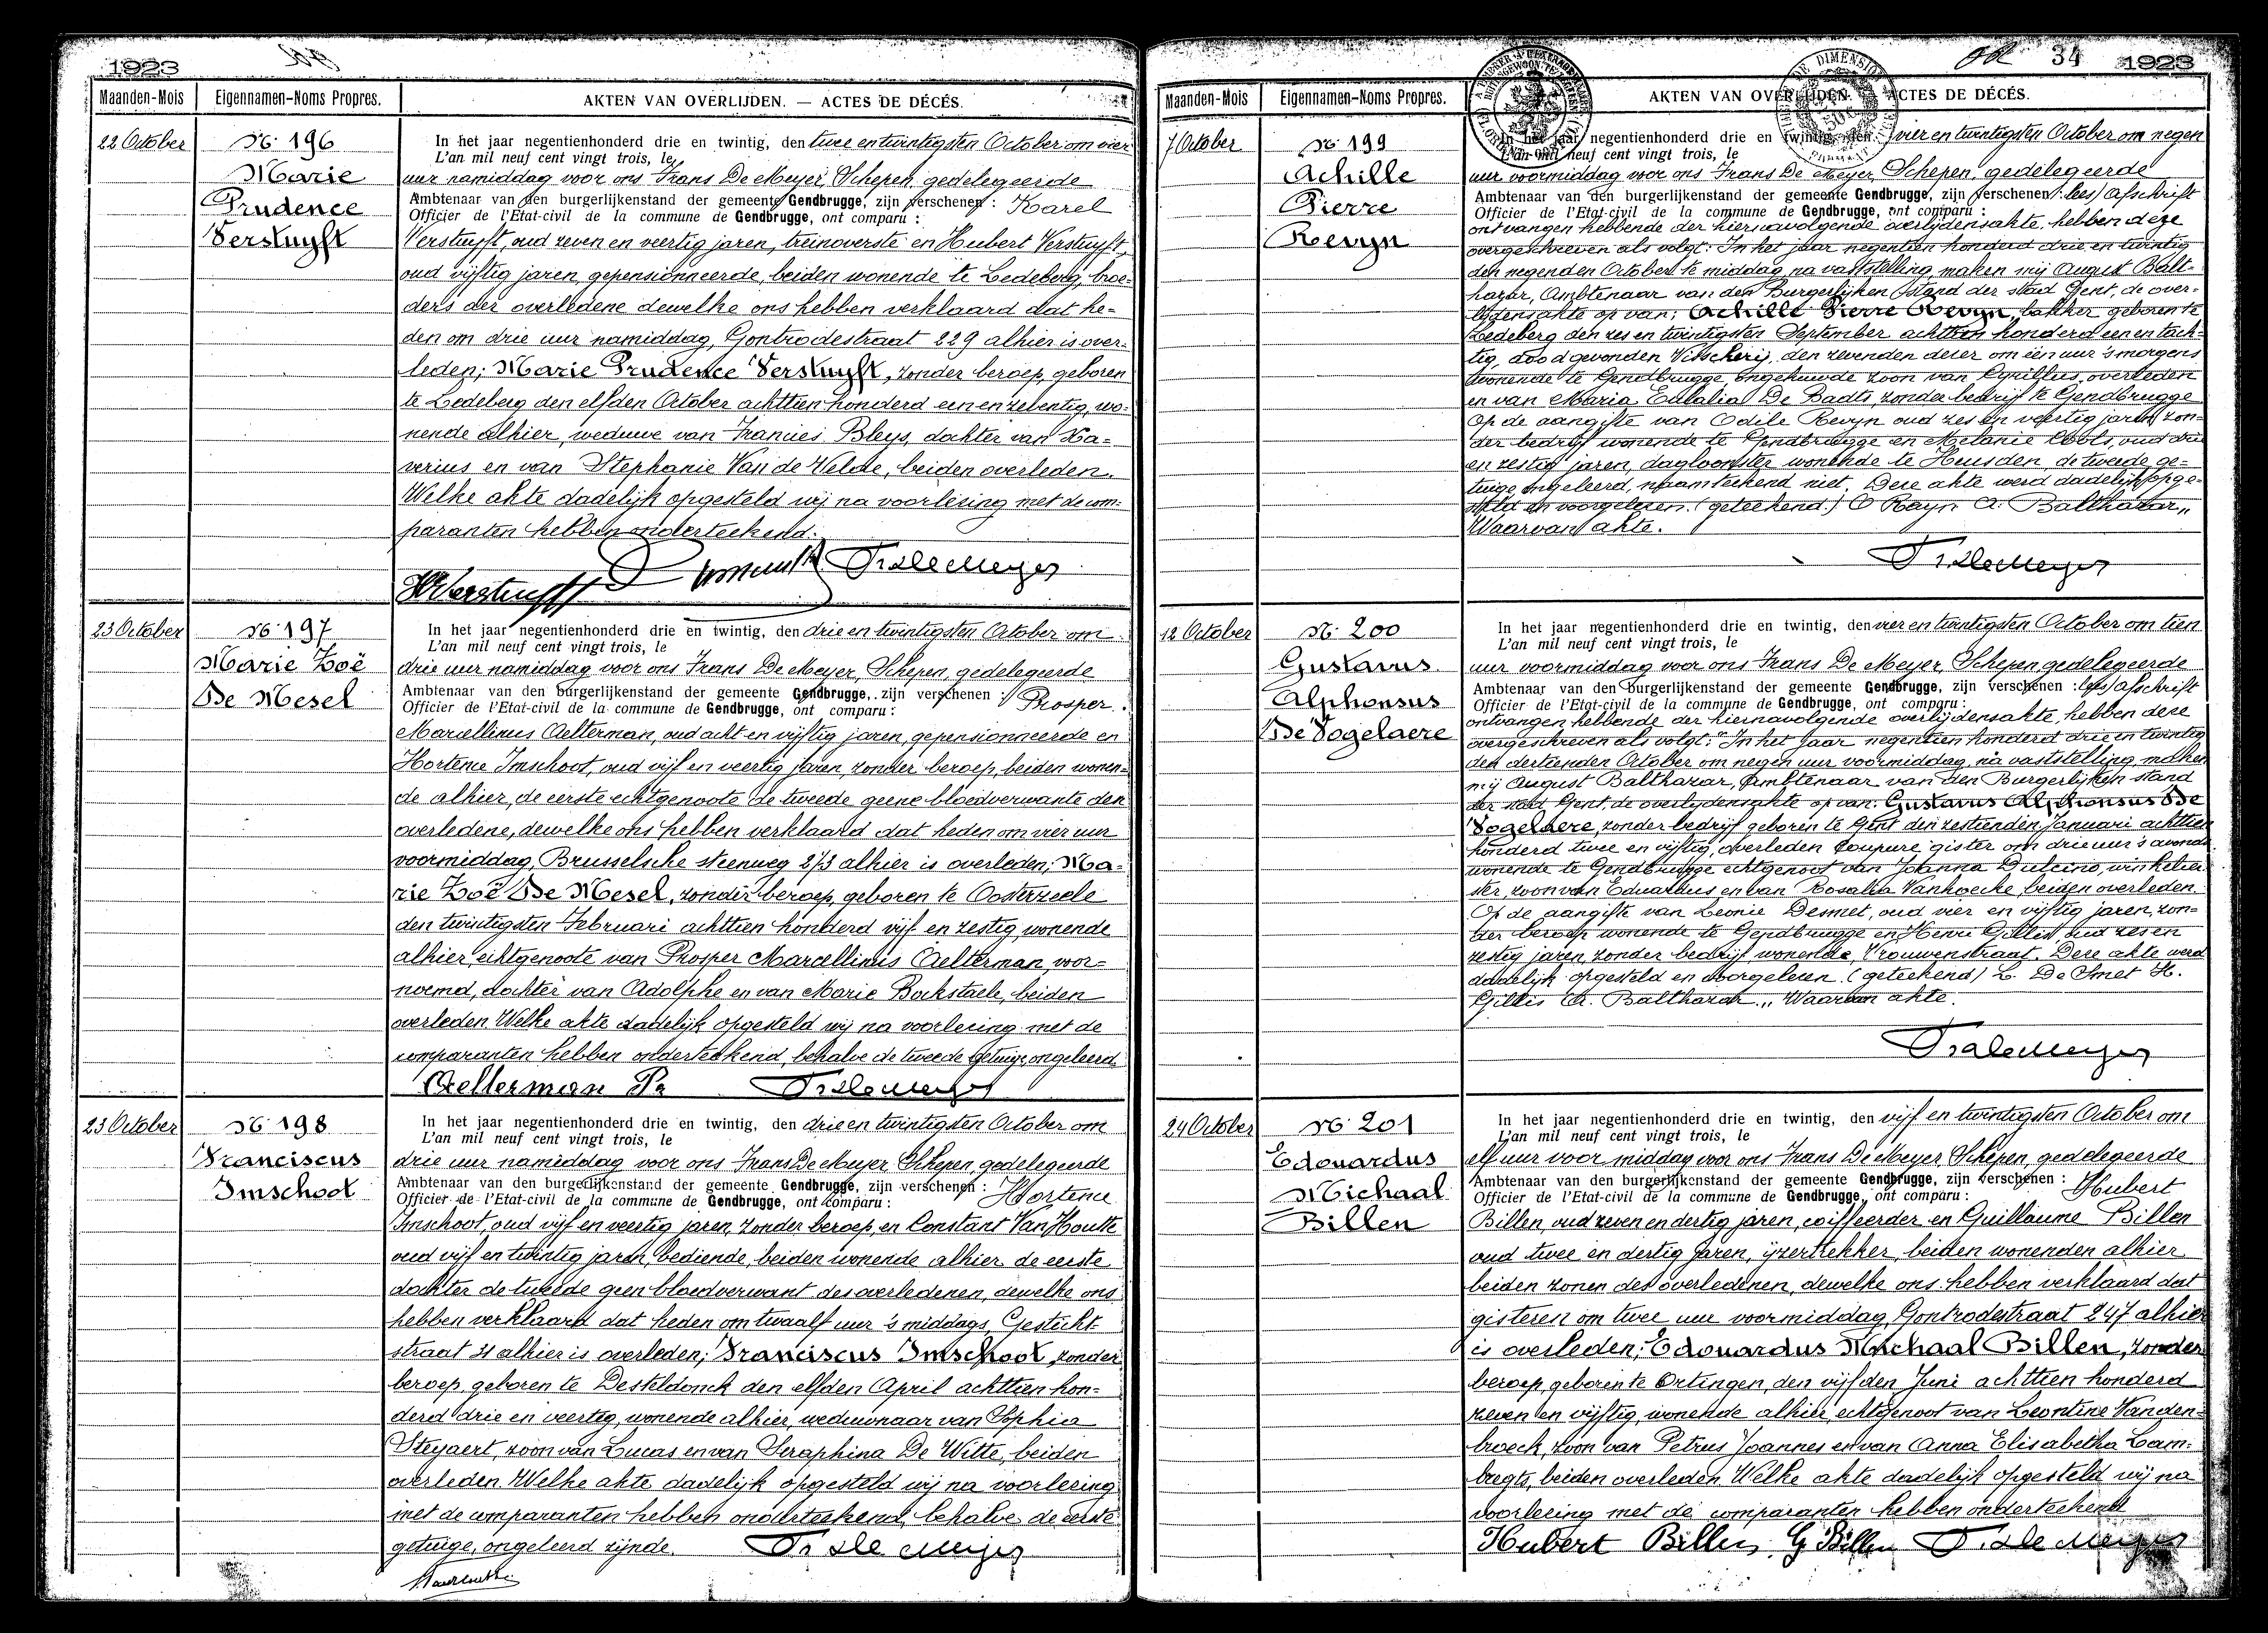 1923
Maanden-Mois Eigennamen-Noms Propres. AKTEN VAN OVERLIJDEN. — ACTES DE DÉCÉS.
22 October
No 196
Marie
Prudence
Verstuyft
In het jaar negentienhonderd drie en twintig, den twee en twintigsten October om vier
L'an mil neuf cent vingt trois, le
uur namiddag voor ons Frans De Meyer, Schepen, gedelegeerde
Ambtenaar van den burgerlijkenstand der gemeente Gendbrugge, zijn verschenen : Karel
Officier de l'Etat-civil de la commune de Gendbrugge, ont comparu :
Verstuyft, oud zeven en veertig jaren, treinoverste en Hubert Verstuyft,
oud vijftig jaren, gepensionneerde, beiden wonende te Ledeberg, broe=
ders der overledene dewelke ons hebben verklaard dat he=
den om drie uur namiddag, Gontrodestraat 229 alhier is over=
leden; Marie Prudence Verstuyft, zonder beroep, geboren
te Ledeberg den elfden October achttien honderd een en zeventig, wo=
nende alhier, weduwe van Francies Bleys, dochter van Xa=
verius en van Stephanie Van de Velde, beiden overleden.
Welke akte dadelijk opgesteld wij na voorlezing met de com=
paranten hebben onderteekend.
HVerstuyft Fr. De Meyer
23 October
No 197
Marie Zoë
De Mesel
In het jaar negentienhonderd drie en twintig, den drie en twintigsten October om
L'an mil neuf cent vingt trois, le
drie uur namiddag voor ons Frans De Meyer, Schepen, gedelegeerde
Ambtenaar van den burgerlijkenstand der gemeente Gendbrugge, zijn verschenen : Prosper
Officier de l'Etat-civil de la commune de Gendbrugge, ont comparu :
Marcellinus Aelterman, oud acht en vijftig jaren, gepensionneerde en
Hortence Imschoot, oud vijf en veertig jaren, zonder beroep, beiden wonen=
de alhier, de eerste echtgenoote de tweede geene bloedverwante den
overledene, dewelke ons hebben verklaard dat heden om vier uur
voormiddag, Brusselsche steenweg 273 alhier is overleden; Ma=
rie Zoë De Mesel, zonder beroep, geboren te Oosterzeele
den twintigsten Februari achttien honderd vijf en zestig, wonende
alhier, echtgenoote van Prosper Marcellinus Aelterman, voor=
noemd, dochter van Adolphe en van Marie Bockstaele, beiden
overleden. Welke akte dadelijk opgesteld wij na voorlezing met de
comparanten hebben onderteekend, behalve de tweede getuige, ongeleerd.
Aelterman Pr Fr. De Meyer
23 October
No 198
Franciscus
Imschoot
In het jaar negentienhonderd drie en twintig, den drie en twintigsten October om
L'an mil neuf cent vingt trois, le
drie uur namiddag voor ons Frans De Meyer, Schepen, gedelegeerde
Ambtenaar van den burgerlijkenstand der gemeente Gendbrugge, zijn verschenen : Hortence
Officier de l'Etat-civil de la commune de Gendbrugge, ont comparu :
Imschoot, oud vijf en veertig jaren, zonder beroep, en Constant Van Houtte
oud vijf en twintig jaren, bediende, beiden wonende alhier de eerste
dochter de tweede geen bloedverwant des overledenen, dewelke ons
hebben verklaard dat heden om twaalf uur 's middags, Gesticht=
straat 31 alhier is overleden; Franciscus Imschoot, zonder
beroep, geboren te Desteldonck den elfden April achttien hon=
derd drie en veertig, wonende alhier, weduwnaar van Sophia
Steyaert, zoon van Lucas en van Seraphina De Witte, beiden
overleden. Welke akte dadelijk opgesteld wij na voorlezing
met de comparanten hebben onderteekend, behalve de eerste
getuige, ongeleerd zijnde. Fr. De Meyer
34 1923
Maanden-Mois Eigennamen-Noms Propres. AKTEN VAN OVERLIJDEN. — ACTES DE DÉCÉS.
7 October
No 199
Achille
Pierre
Revyn
In het jaar negentienhonderd drie en twintig, den vier en twintigsten October om negen
L'an mil neuf cent vingt trois, le
uur voormiddag voor ons Frans De Meyer, Schepen, gedelegeerde
Ambtenaar van den burgerlijkenstand der gemeente Gendbrugge, zijn verschenen : lees) Afschrift
Officier de l'Etat-civil de la commune de Gendbrugge, ont comparu :
ontvangen hebbende der hiernavolgende overlijdensakte, hebben deze
overgeschreven als volgt: In het jaar negentien honderd drie en twintig
den negenden October te middag, na vaststelling, maken mij August Balt=
hazar, Ambtenaar van den Burgerlijken stand der stad Gent, de over=
lijdensakte op van: Achille Pierre Revyn, bakker geboren te
Ledeberg den zes en twintigsten September achttien honderd een en tach=
tig, dood gevonden Visscherij, den zevenden dezer om een uur 's morgens
wonende te Gendbrugge, ongehuwde zoon van Cyrillus, overleden
en van Maria Eulalia De Badts zonder bedrijf te Gendbrugge
Op de aangifte van Odile Revyn oud zes en veertig jaren, zon=
der bedrijf wonende te Gendbrugge en Melanie Cools, oud drie
en zestig jaren, dagloonster wonende te Heusden, de tweede ge=
tuige ongeleerd, naamteekend niet. Deze akte werd dadelijk opge=
steld en voorgelezen. (geteekend.) O Rayn A. Balthazar„
Waarvan akte.
Fr. De Meyer
12 October
No 200
Gustavus
Alphonsus
De Vogelaere
In het jaar negentienhonderd drie en twintig, den vier en twintigsten October om tien
L'an mil neuf cent vingt trois, le
uur voormiddag voor ons Frans De Meyer, Schepen, gedelegeerde
Ambtenaar van den burgerlijkenstand der gemeente Gendbrugge, zijn verschenen : lees) Afschrift
Officier de l'Etat-civil de la commune de Gendbrugge, ont comparu :
ontvangen hebbende der hiernavolgende overlijdensakte, hebben deze
overgeschreven als volgt: "In het jaar negentien honderd drie en twintig
den dertienden October om negen uur voormiddag, na vaststelling, maken
mij August Balthazar, Ambtenaar van den Burgerlijken stand
der stad Gent, de overlijdensakte op van: Gustavus Alphonsus De
Vogelaere, zonder bedrijf geboren te Gent den zestienden Januari achttien
honderd twee en vijftig, overleden Coupure gister om drie uur 's avonds
wonende te Gendbrugge echtgenoot van Joanna Dulcino, winkelier=
ster, zoon van Eduardus en van Rosalia Vanhoecke, beiden overleden.
Op de aangifte van Leonie Desmet, oud vier en vijftig jaren, zon=
der beroep wonende te Gendbrugge en Henri Gillis, oud zes en
zestig jaren, zonder bedrijf wonende, Vrouwenstraat. Deze akte werd
dadelijk opgesteld en voorgelezen. (geteekend) L. De Smet H.
Gillis A. Balthazar„ Waarvan akte.
Fr. De Meyer
24 October
No 201
Edouardus
Michaal
Billen
In het jaar negentienhonderd drie en twintig, den vijf en twintigsten October om
L'an mil neuf cent vingt trois, le
elf uur voormiddag voor ons Frans De Meyer, Schepen, gedelegeerde
Ambtenaar van den burgerlijkenstand der gemeente Gendbrugge, zijn verschenen : Hubert
Officier de l'Etat-civil de la commune de Gendbrugge, ont comparu :
Billen, oud zeven en dertig jaren, coiffeerder en Guillaume Billen
oud twee en dertig jaren, ijzertrekker, beiden wonenden alhier
beiden zonen des overledenen, dewelke ons hebben verklaard dat
gisteren om twee uur voormiddag, Gontrodestraat 247 alhier
is overleden; Edouardus Michaal Billen, zonder
beroep, geboren te Ortingen, den vijfden Juni achttien honderd
zeven en vijftig, wonende alhier, echtgenoot van Leontine Vanden=
broeck, zoon van Petrus Joannes en van Anna Elisabetha Lam=
bregts, beiden overleden. Welke akte dadelijk opgesteld wij na
voorlezing met de comparanten hebben onderteekend
Hubert Billen G Billen Fr. De Meyer